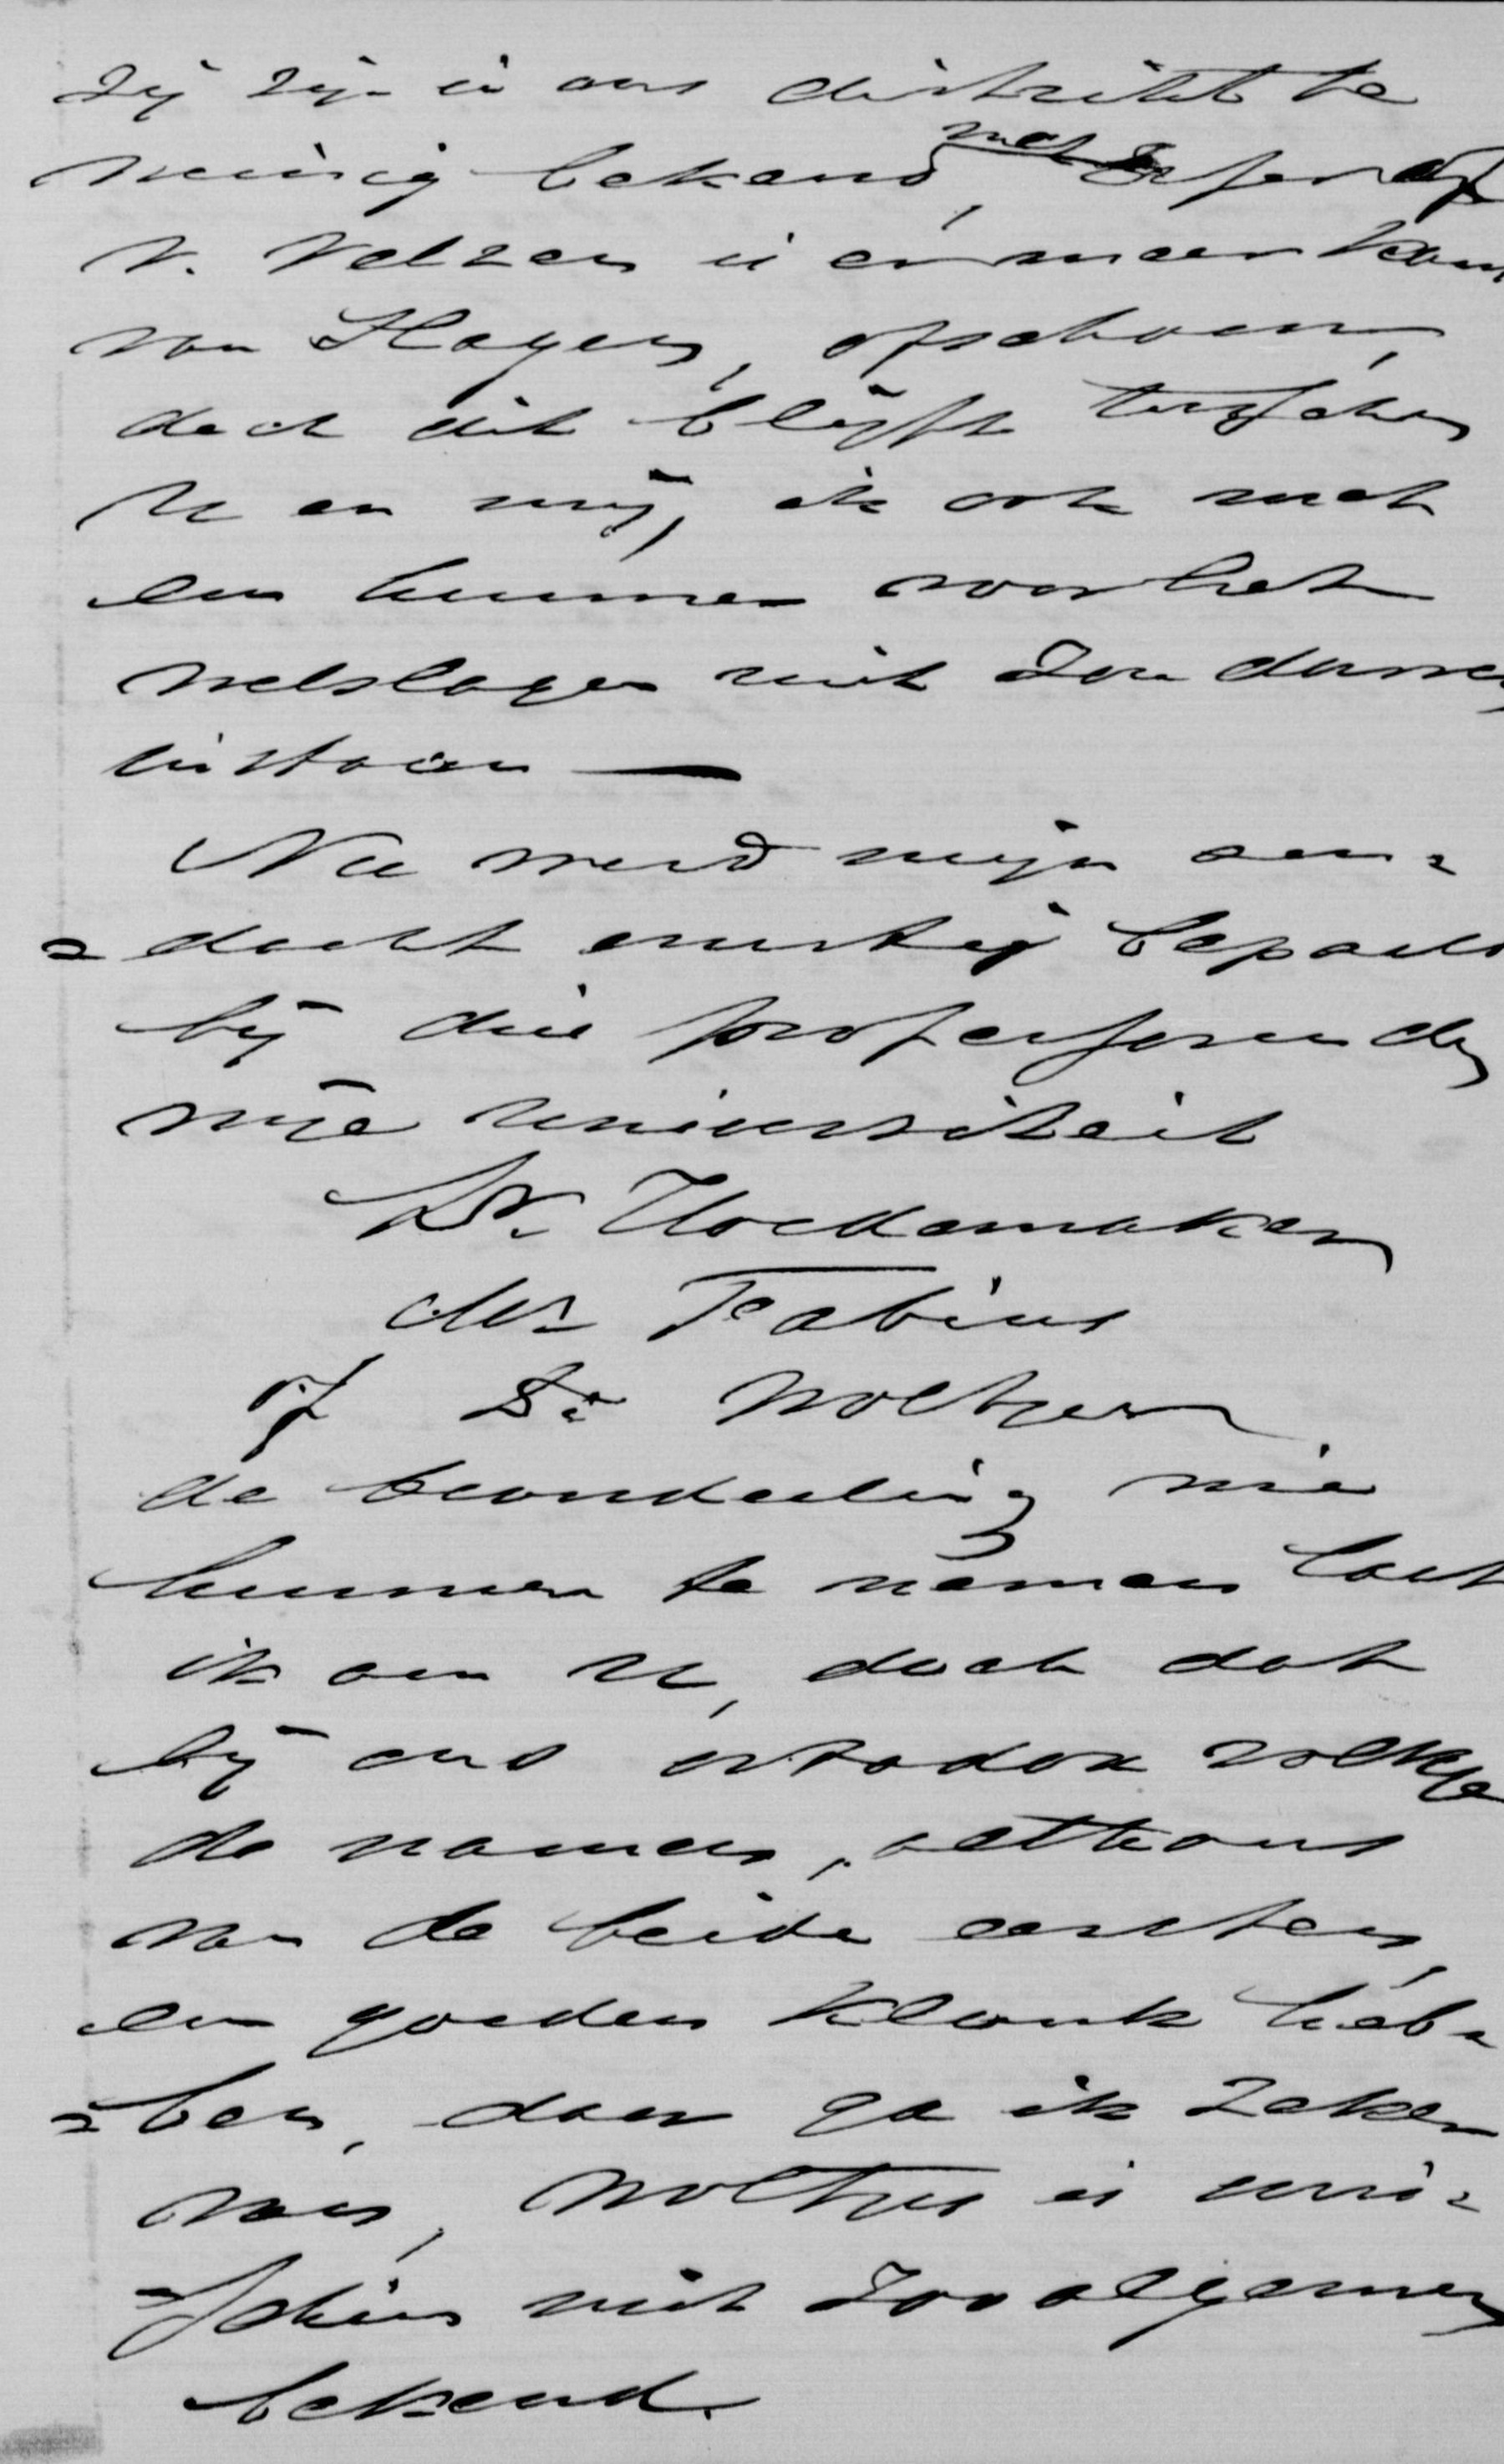 zij zijn in ons distrikt te
weinig bekend, met
v. Velzen is er meer kans
van slagen, ofschoon,
doch dit blijft tusschen
U en mij, ik ook met
een hunner voor het
welslagen niet zou durven
instaan —
Nu werd mijn aan=
=dacht ernstig bepaald
bij die professoren der
vrije universiteit
Dr. Hoedemaker
Mr Fabius
of Dr Woltjer
de beoordeeling wie
hunner te nemen laat
ik aan U, doch dat
bij ons ortodox volkje
de namen, althans
van de beide eersten,
een goeden klank heb=
=ben, daar ga ik zeker
van, Woltjer is mis=
=schien niet zoo algemeen
bekend.